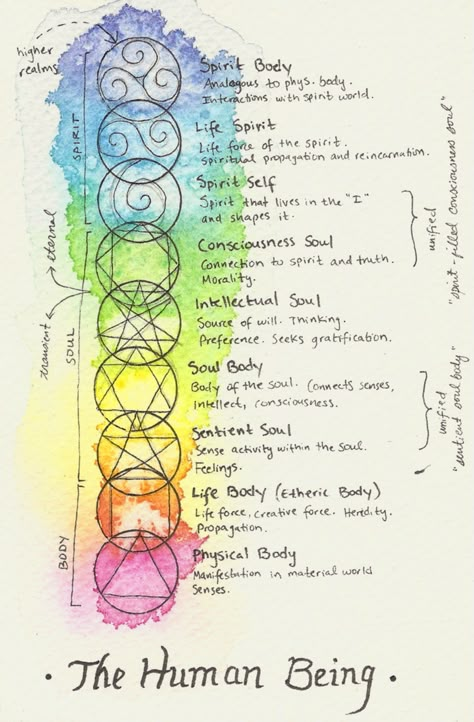 higher
realms
Spirit Body
Analogous to phys. body.
Interactions with spirit world.
Life Spirit
Life force of the spirit.
spiritual propagation and reincarnation.
Spirit Self
Spirit that lives in the "I"
and shapes it.
Consciousness Soul
Connection to spirit and truth.
Morality.
Intellectual Soul
Source of will. Thinking.
Preference. Seeks gratification.
Soul Body
Body of the soul. Connects senses,
intellect, consciousness.
Sentient Soul
Sense activity within the soul.
Feelings.
Life Body (Etheric Body)
Life force, creative force. Heredity.
Propagation.
Physical Body
Manifestation in material world
Senses.
SPIRIT
eternal
transient
SOUL
BODY
unified
"spirit-filled consciousness soul"
unified
"sentient soul body"
· The Human Being ·